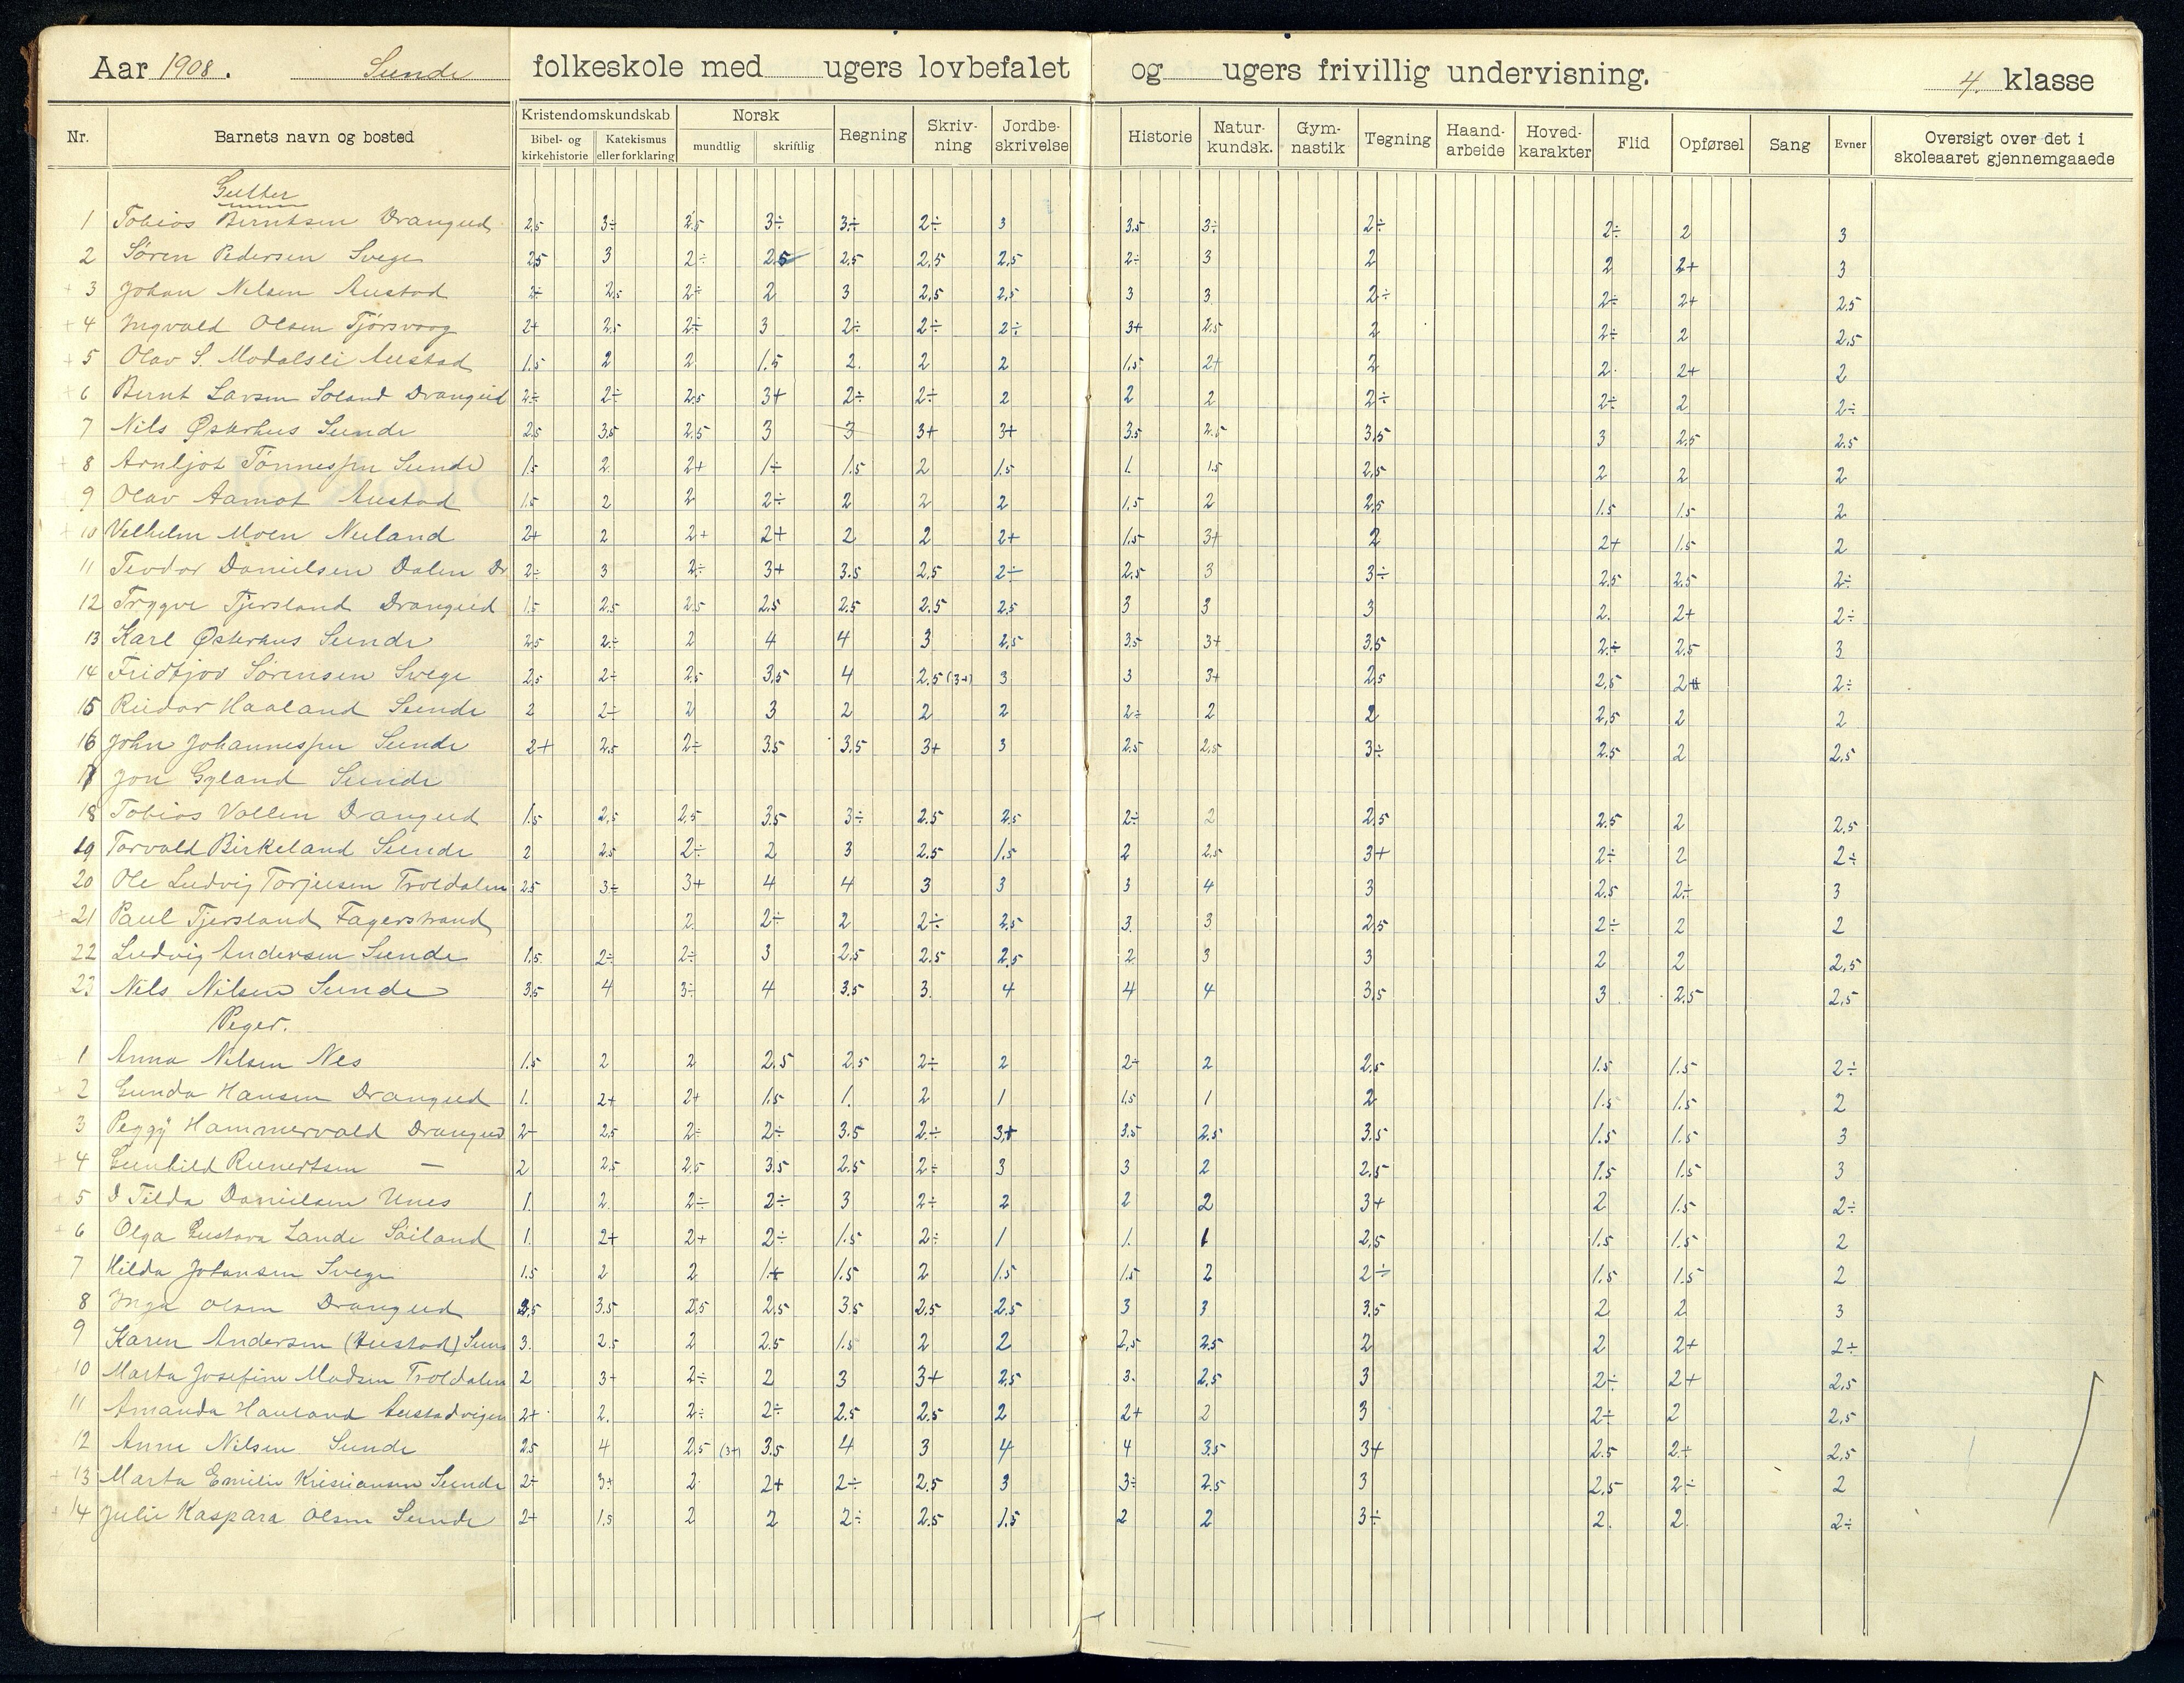 Aar 1908. Sunde folkeskole med ugers lovbefalet og ugers frivillig undervisning. 4. klasse
Nr. Barnets navn og bosted Kristendomskundskab Bibel- og kirkehistorie Katekismus eller forklaring Norsk mundtlig skriftlig Regning Skriv-ning Jordbe-skrivelse Historie Natur-kundsk. Gym-nastik Tegning Haand-arbeide Hoved-karakter Flid Opførsel Sang Evner Oversigt over det i skoleaaret gjennemgaaede
Gutter
1 Tobias Berntsen Drangeid 2,5 3÷ 2,5 3÷ 3÷ 2÷ 3 3.5 3÷ 2÷ 2÷ 2 3
2 Søren Pedersen Svege 2,5 3 2÷ 2.5 2,5 2,5 2,5 2÷ 3 2 2 2+ 3
3 Johan Nilsen Austad 2÷ 2,5 2÷ 2 3 2,5 2,5 3 3 2÷ 2÷ 2+ 2,5
4 Ingvald Olsen Tjørsvaag 2+ 2,5 2÷ 3 2÷ 2÷ 2÷ 3+ 2.5 2 2÷ 2 2,5
5 Olav S. Modalsli Austad 1.5 2 2 1.5 2. 2 2 1.5 2+ 2 2. 2+ 2
6 Bernt Larsen Soland Drangeid 2÷ 2÷ 2,5 3+ 2÷ 2÷ 2 2 2 2÷ 2÷ 2 2÷
7 Nils Østerhus Sunde 2,5 3,5 2,5 3 3 3+ 3+ 3.5 2.5 3,5 3 2,5 2.5
8 Arnljot Tønnessen Sunde 1.5 2. 2+ 1÷ 1.5 2 1.5 1. 1.5 2,5 2 2 2
9 Olav Aamot Austad 1.5 2 2 2÷ 2 2 2 1,5 2 2,5 1.5 1.5 2
10 Velhelm Moen Neuland 2+ 2 2+ 2+ 2 2 2+ 1.5 3+ 2 2+ 1.5 2
11 Teodor Danielsen Dalen Dr 2÷ 3 2÷ 3+ 3.5 2,5 2÷ 2.5 3 3÷ 2.5 2.5 2÷
12 Trygve Tjersland Drangeid 1.5 2.5 2,5 2.5 2.5 2.5 2,5 3 3 3 2. 2+ 2÷
13 Karl Østerhus Sunde 2,5 2÷ 2 4 4 3 2,5 3.5 3+ 3,5 2÷ 2.5 3
14 Fridtjov Sørensen Svege 2,5 2÷ 2,5 3,5 4 2.5 (3+) 3 3 3+ 2,5 2,5 2+ 2÷
15 Reidar Haaland Sunde 2 2÷ 2 3 2 2 2 2÷ 2 2 2,5 2 2
16 John Johannessen Sunde 2+ 2,5 2÷ 3.5 3,5 3+ 3 2.5 2,5 3÷ 2.5 2 2,5
17 Jon Gyland Sunde
18 Tobias Vollen Drangeid 1.5 2,5 2,5 3.5 3÷ 2.5 2,5 2÷ 2 2,5 2.5 2 2,5
19 Torvald Birkeland Sunde 2 2.5 2÷ 2 3 2.5 1.5 2 2,5 3+ 2÷ 2 2÷
20 Ole Ludvig Torjusen Troldalen 2.5 3÷ 3+ 4 4 3 3 3 4 3 2.5 2÷ 3
21 Paul Tjersland Fagerstrand 2. 2÷ 2 2÷ 2,5 3. 3 2,5 2÷ 2 2
22 Ludvig Andersen Sunde 1.5. 2÷ 2÷ 3 2,5 2.5 2,5 2 3 3 2 2 2,5
23 Nils Nilsen Sunde 3,5 4 3÷ 4 3.5 3. 4 4 4 3,5 3 2.5 2,5
Peger.
1 Anna Nilsen Nes 1.5 2 2 2,5 2,5 2÷ 2 2÷ 2 2,5 1.5 1.5 2÷
2 Gunda Hansen Drangeid 1. 2+ 2+ 1.5 1. 2 1 1,5 1 2 1.5 1.5 2
3 Peggy Hammervold Drangeid 2÷ 2,5 2÷ 2÷ 3.5 2÷ 3+ 3.5 2.5 3.5 1.5 1.5 3
4 Gunhild Reinertsen — 2 2.5 2,5 3,5 2.5 2÷ 3 3 2 2.5 1.5 1.5 3
5 Tilda Danielsen Unes 1. 2. 2÷ 2÷ 3 2÷ 2 2 2 3+ 2 1.5 2÷
6 Olga Gustava Lande Søiland 1. 2+ 2+ 2÷ 1.5 2÷ 1 1. 1 2,5 1.5 1.5 2
7 Hilda Johansen Svege 1.5 2 2 1+ 1.5 2 1.5 1.5 2 2÷ 1.5 1.5 2
8 Inga Olsen Drangeid 2,5 3.5 2,5 2,5 3.5 2,5 2.5 3 3 3.5 2 2 3
9 Karen Andersen (Austad) Sun 3. 2.5 2 2.5 1.5 2 2 2,5 2.5 2 2 2+ 2÷
10 Marta Josefine Madsen Troldalen 2 3+ 2÷ 2 3 3+ 2.5 3. 2,5 3 2÷ 2+ 2,5
11 Amanda Hauland Austadvigen 2+ 2. 2÷ 2÷ 2.5 2.5 2 2+ 2 3 2÷ 2 2,5
12 Anne Nilsen Sunde 2.5 4 2,5 (3+) 3.5 4 3 4 4 3.5 3+ 2.5 2+ 2,5
13 Marta Emilie Kristiansen Sunde 2÷ 3+ 2. 2+ 2÷ 2.5 3 3÷ 2.5 3 2,5 2÷ 2
14 Julie Kaspara Olsen Sunde 2+ 1.5 2 2 2÷ 2.5 1.5 2 2 3÷ 2. 2. 2÷